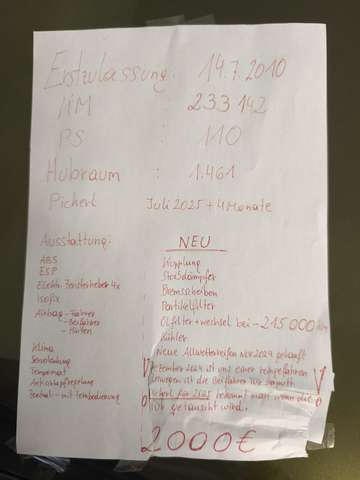 Erstzulassung: 14.7.2010
KM : 233 142
PS : 110
Hubraum : 1.461
Pickerl Juli 2025 + 4 Monate
Ausstattung:
ABS
ESP
Elektr. Fensterheber 4x
Isofix
Airbag - Fahrer
- Beifahrer
- Hinten
Klima
Servolenkung
Tempomat
Antischlupfregelung
Zentral - mit Fernbedienung
NEU
Kupplung
Stoßdämpfer
Bremscheiben
Partikelfilter
Ölfilter + wechsel bei - 215 000
Kühler
Neue Allwetterreifen Nov 2024 gekauft
Dezember 2024 ist uns einer
ist die Beifahrer
Pickerl für 2025 bekommt man wenn das
getauscht wird.
2000€